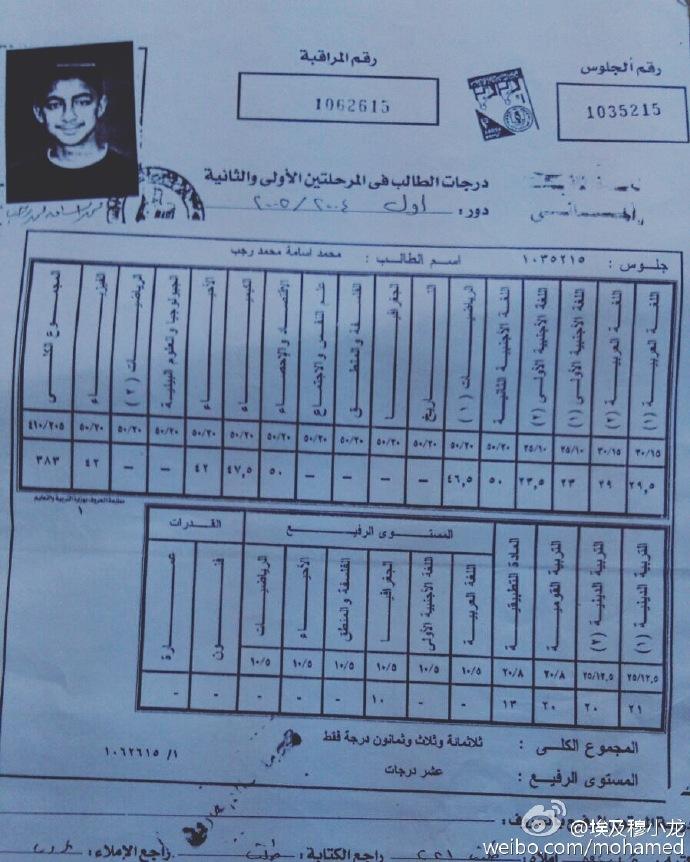 رقم الجلوس
1035215
رقم المراقبة
1062615
درجات الطالب فى المرحلتين الأولى والثانية
دور : اول ٢٠٠٤ / ٢٠٠٥
جلوس : ١٠٣٥٢١٥ اسم الطالب : محمد اسامة محمد رجب
اللغة العربية (١) اللغة العربية (٢) اللغة الأجنبية الأولى (١) اللغة الأجنبية الأولى (٢) اللغة الأجنبية الثانية الرياضيات (١) التاريخ الجغرافيا الفلسفة والمنطق علم النفس والاجتماع الاقتصاد والإحصاء الكيمياء الأحياء الجيولوجيا والعلوم البيئية الرياضيات (٢) الفيزياء المجموع الكلى
٣٠/١٥ ٣٠/١٥ ٢٥/١٠ ٢٥/١٠ ٥٠/٢٠ ٥٠/٢٠ ٥٠/٢٠ ٥٠/٢٠ ٥٠/٢٠ ٥٠/٢٠ ٥٠/٢٠ ٥٠/٢٠ ٥٠/٢٠ ٥٠/٢٠ ٥٠/٢٠ ٥٠/٢٠ ٤١٠/٢٠٥
٢٩,٥ ٢٩ ٢٣ ٢٣,٥ ٥٠ ٤٦,٥ – – – – ٥٠ ٤٧,٥ ٤٢ – – ٤٢ ٣٨٣
١
المستوى الرفيع القدرات
التربية الدينية (١) التربية الدينية (٢) التربية القومية المادة التطبيقية اللغة العربية اللغة الأجنبية الأولى الجغرافيا الفلسفة والمنطق الأحياء الرياضيات فنون عمارة
٢٥/١٢,٥ ٢٥/١٢,٥ ٢٠/٨ ٢٠/٨ ١٠/٥ ١٠/٥ ١٠/٥ ١٠/٥ ١٠/٥ ١٠/٥
٢١ ٢٠ ٢٠ ١٣ - - ١٠ - - - - -
المجموع الكلى : ثلاثمائة وثلاث وثمانون درجة فقط
المستوى الرفيع : عشر درجات
١/ ١٠٦٢٦١٥
راجع الكتابة : راجع الإملاء :
@埃及穆小龙
weibo.com/mohamed